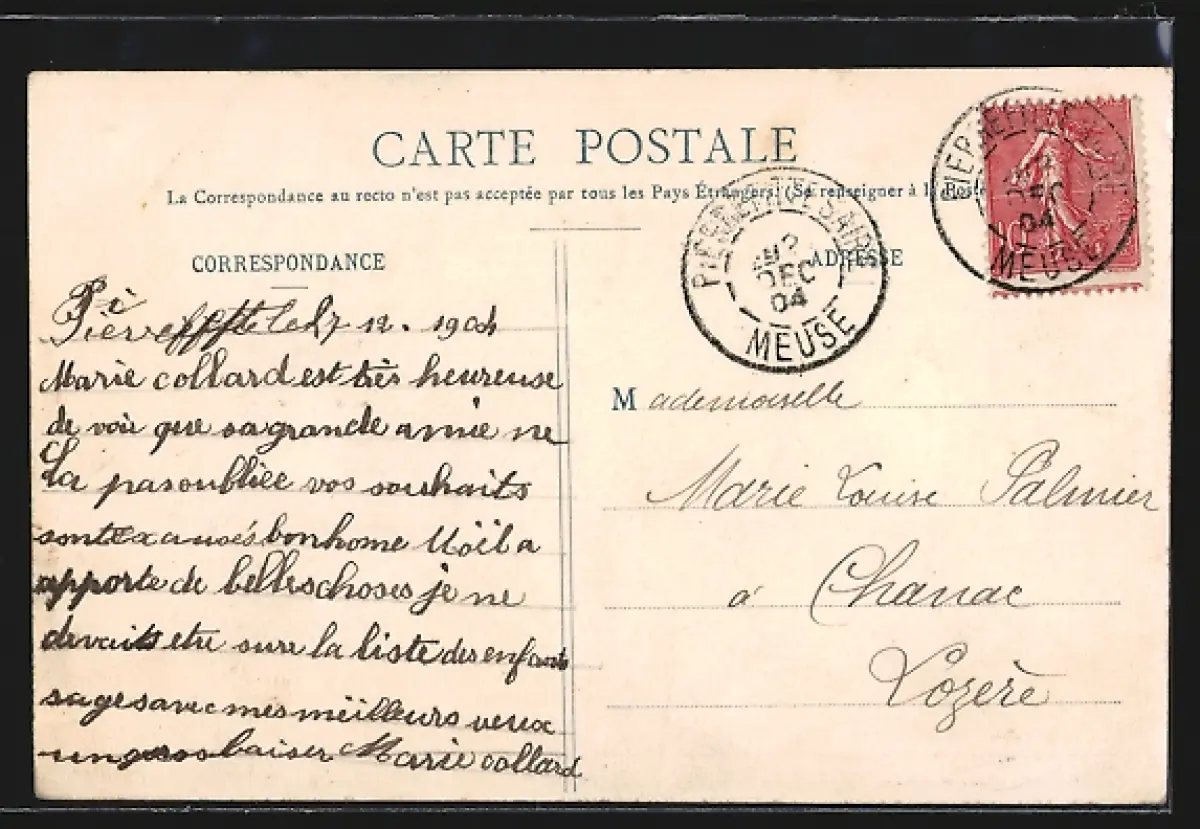 CARTE POSTALE
La Correspondance au recto n'est pas acceptée par tous les Pays Étrangers. (Se renseigner à la Poste
CORRESPONDANCE
ADRESSE
12
DEC
04
MEUSE
DEC
04
MEUSE
12. 1904
Marie collard est très heureuse
de voir que sa grande amie ne
La pas oubliée vos souhaits
bonhome Noël a
apporte de belles choses je ne
devaits etre sure la liste des enfants
sages avec mes mëilleurs veux
un gros baiser Marie collard
Mademoiselle
Marie Louise Palmier
à Chanac
Lozère